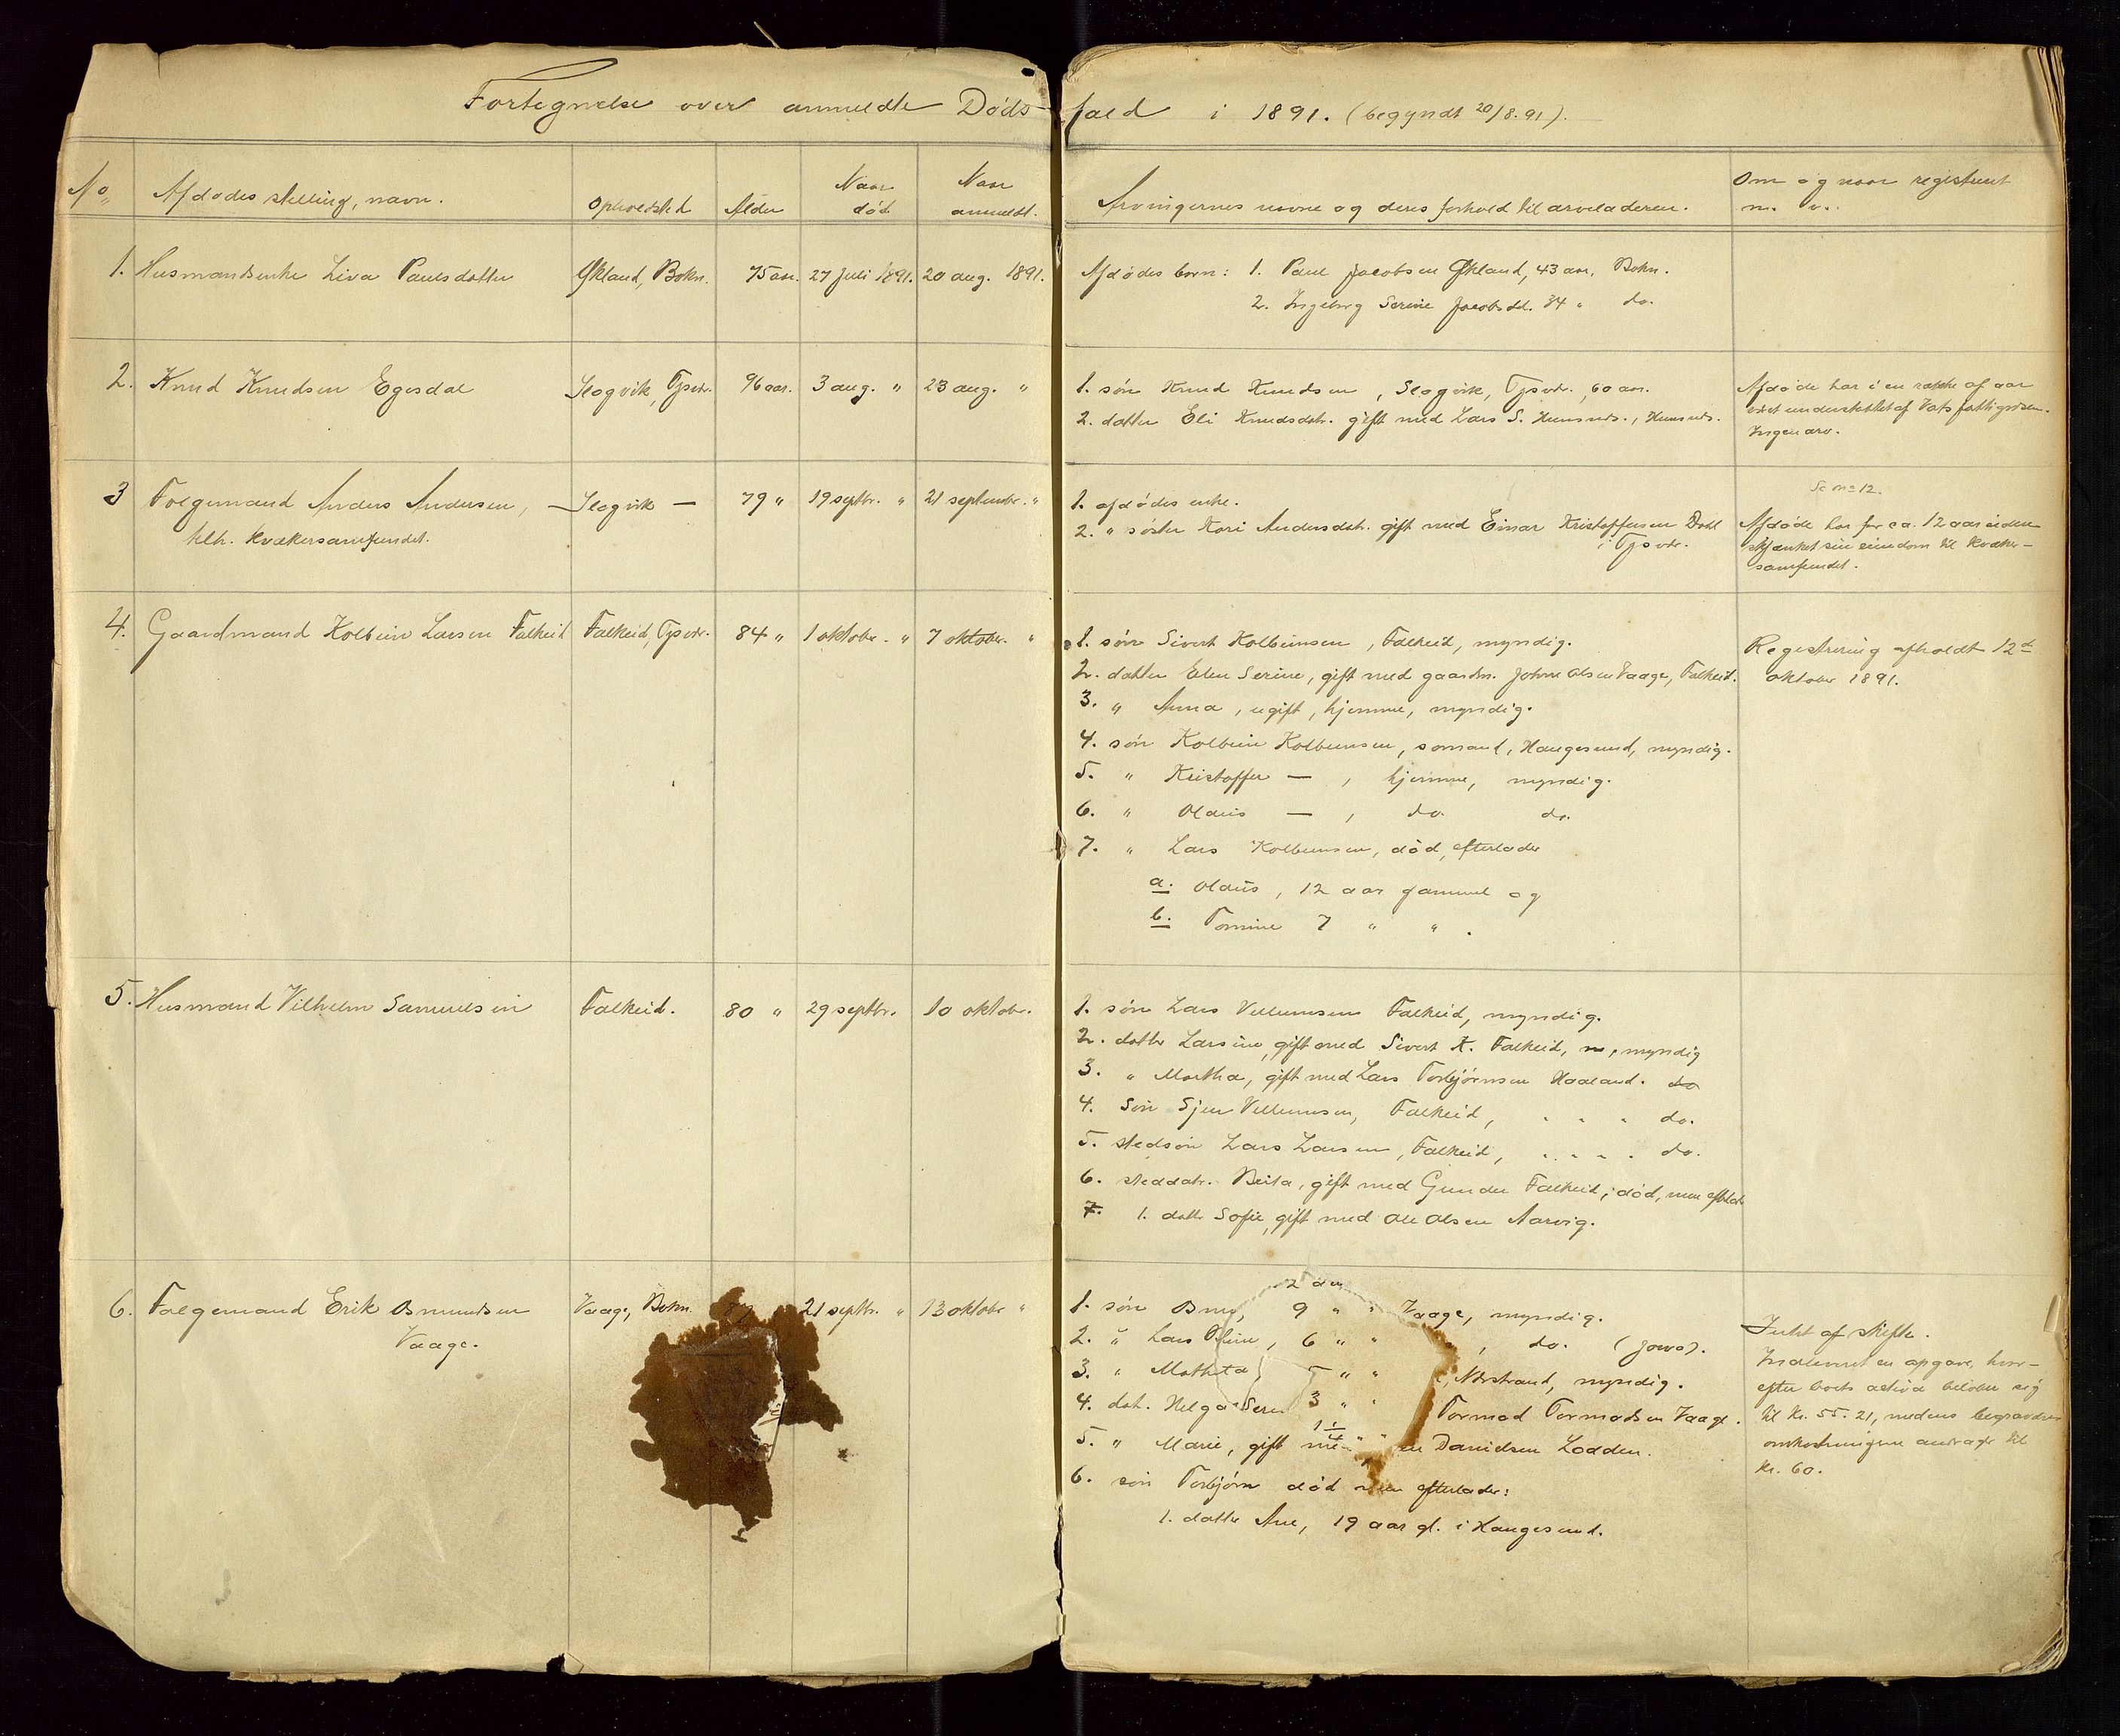 Fortegnelse over anmeldte Døds- fald i 1891. (begyndt 20/8.91).
No. Afdødes stilling, navn. Opholdssted Alder Naar død Naar anmeldt. Arvingernes navne og deres forhold til arveladeren. Om og naar registreret m. v.
1. Husmandsenke Liva Paulsdatter Økland, Bokn. 75 aar. 27 juli 1891. 20 aug. 1891.
Afdødes børn: 1. Paul Jacobsen Økland, 43 aar, Bokn.
2. Ingeborg Serine Jacobsdd. 34 " do.
2. Knud Knudsen Egesdal Slogvik, Tysvr. 96 aar. 3 aug. " 23 aug. "
1. søn Knud Knudsen, Slogvik, Tysvr., 60 aar.
2. datter Eli Knudsdtr. gift med Lars S.
Afdøde har i en række af aar
været understøttet af Vats fattigvæsen.
Ingen arv.
3 Følgemand Anders Andersen, — Slogvik — 79 " 19 septbr. " 21 septembr. "
tilh. kvækersamfundet.
1. afdødes enke.
2. " søster Kari Andersdtr. gift med Einar Kristoffersen Dahl
i Tysvr.
Se no 12.
Afdøde har for ca. 12 aar siden
skjænket sin eiendom til kvæker-
samfundet.
4. Gaardmand Kolbein Larsen Falkeid Falkeid, Tysvr. 84 " 1 oktobr. " 7 oktober. "
1. søn Sivert Kolbeinsen, Falkeid, myndig.
2. datter Elen Serine, gift med gaardm. Johne Olsen Vaage, Falkeid.
3. " Anna, ugift, hjemme, myndig.
4. søn Kolbein Kolbeinsen, sømand, Haugesund, myndig.
5. " Kristoffer —, hjemme, myndig.
6. " Olaus —, do. do.
7. " Lars Kolbeinsen, død, efterlader
a. Olaus, 12 aar gammel og
b. Tomine 7 " " .
Registrering afholdt 12te
oktober 1891.
5. Husmand Vilhelm Samuelsen Falkeid. 80 " 29 septbr. 10 oktobr.
1. søn Lars Vellumsen Falkeid, myndig.
2. datter Larsine, gift med Sivert K. Falkeid, myndig
3. " Martha, gift med Lars Torbjørnsen Haaland. do
4. Søn Sjur Vellumsen, Falkeid, " " " do.
5. stedsøn Lars Larsen, Falkeid, " " " " do.
6. steddatr. Brita, gift med Gunder Falkeid, død, men efterlader
7. 1. dattr Sofie, gift med Ole Olsen Aarvig.
6. Følgemand Erik Osmundsen Vaage, Bokn. 21 septbr. " 13 oktobr "
Vaage.
2 aar
1. søn 9 " " Vaage, myndig.
2. " Lars 6 " " , do. (Jowa).
3. " 5 " " , Nerstrand, myndig.
4. dat. Helga Seri 3 " " Tormod Tormodsen Vaage.
5. " Marie, gift me " " en Danielsen Lodden.
6. søn Torbjørn død men efterlader:
1. datter Ane, 19 aar gl. i Haugesund.
Intet af skifte.
Indleveret en opgave, hvor-
efter boets activa beløber sig
til Kr. 55.21, medens begravelses
omkostningerne andrager til
Kr. 60.